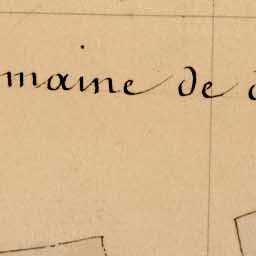 maine de